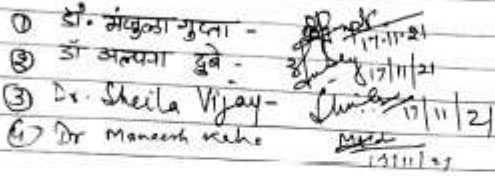 ① डॉ. मंजुला गुप्ता - 17.11.21
② डॉ अल्पना दुबे - 17/11/21
③ Dr. Sheila Vijay - 17/11/21
④ Dr Maneesh